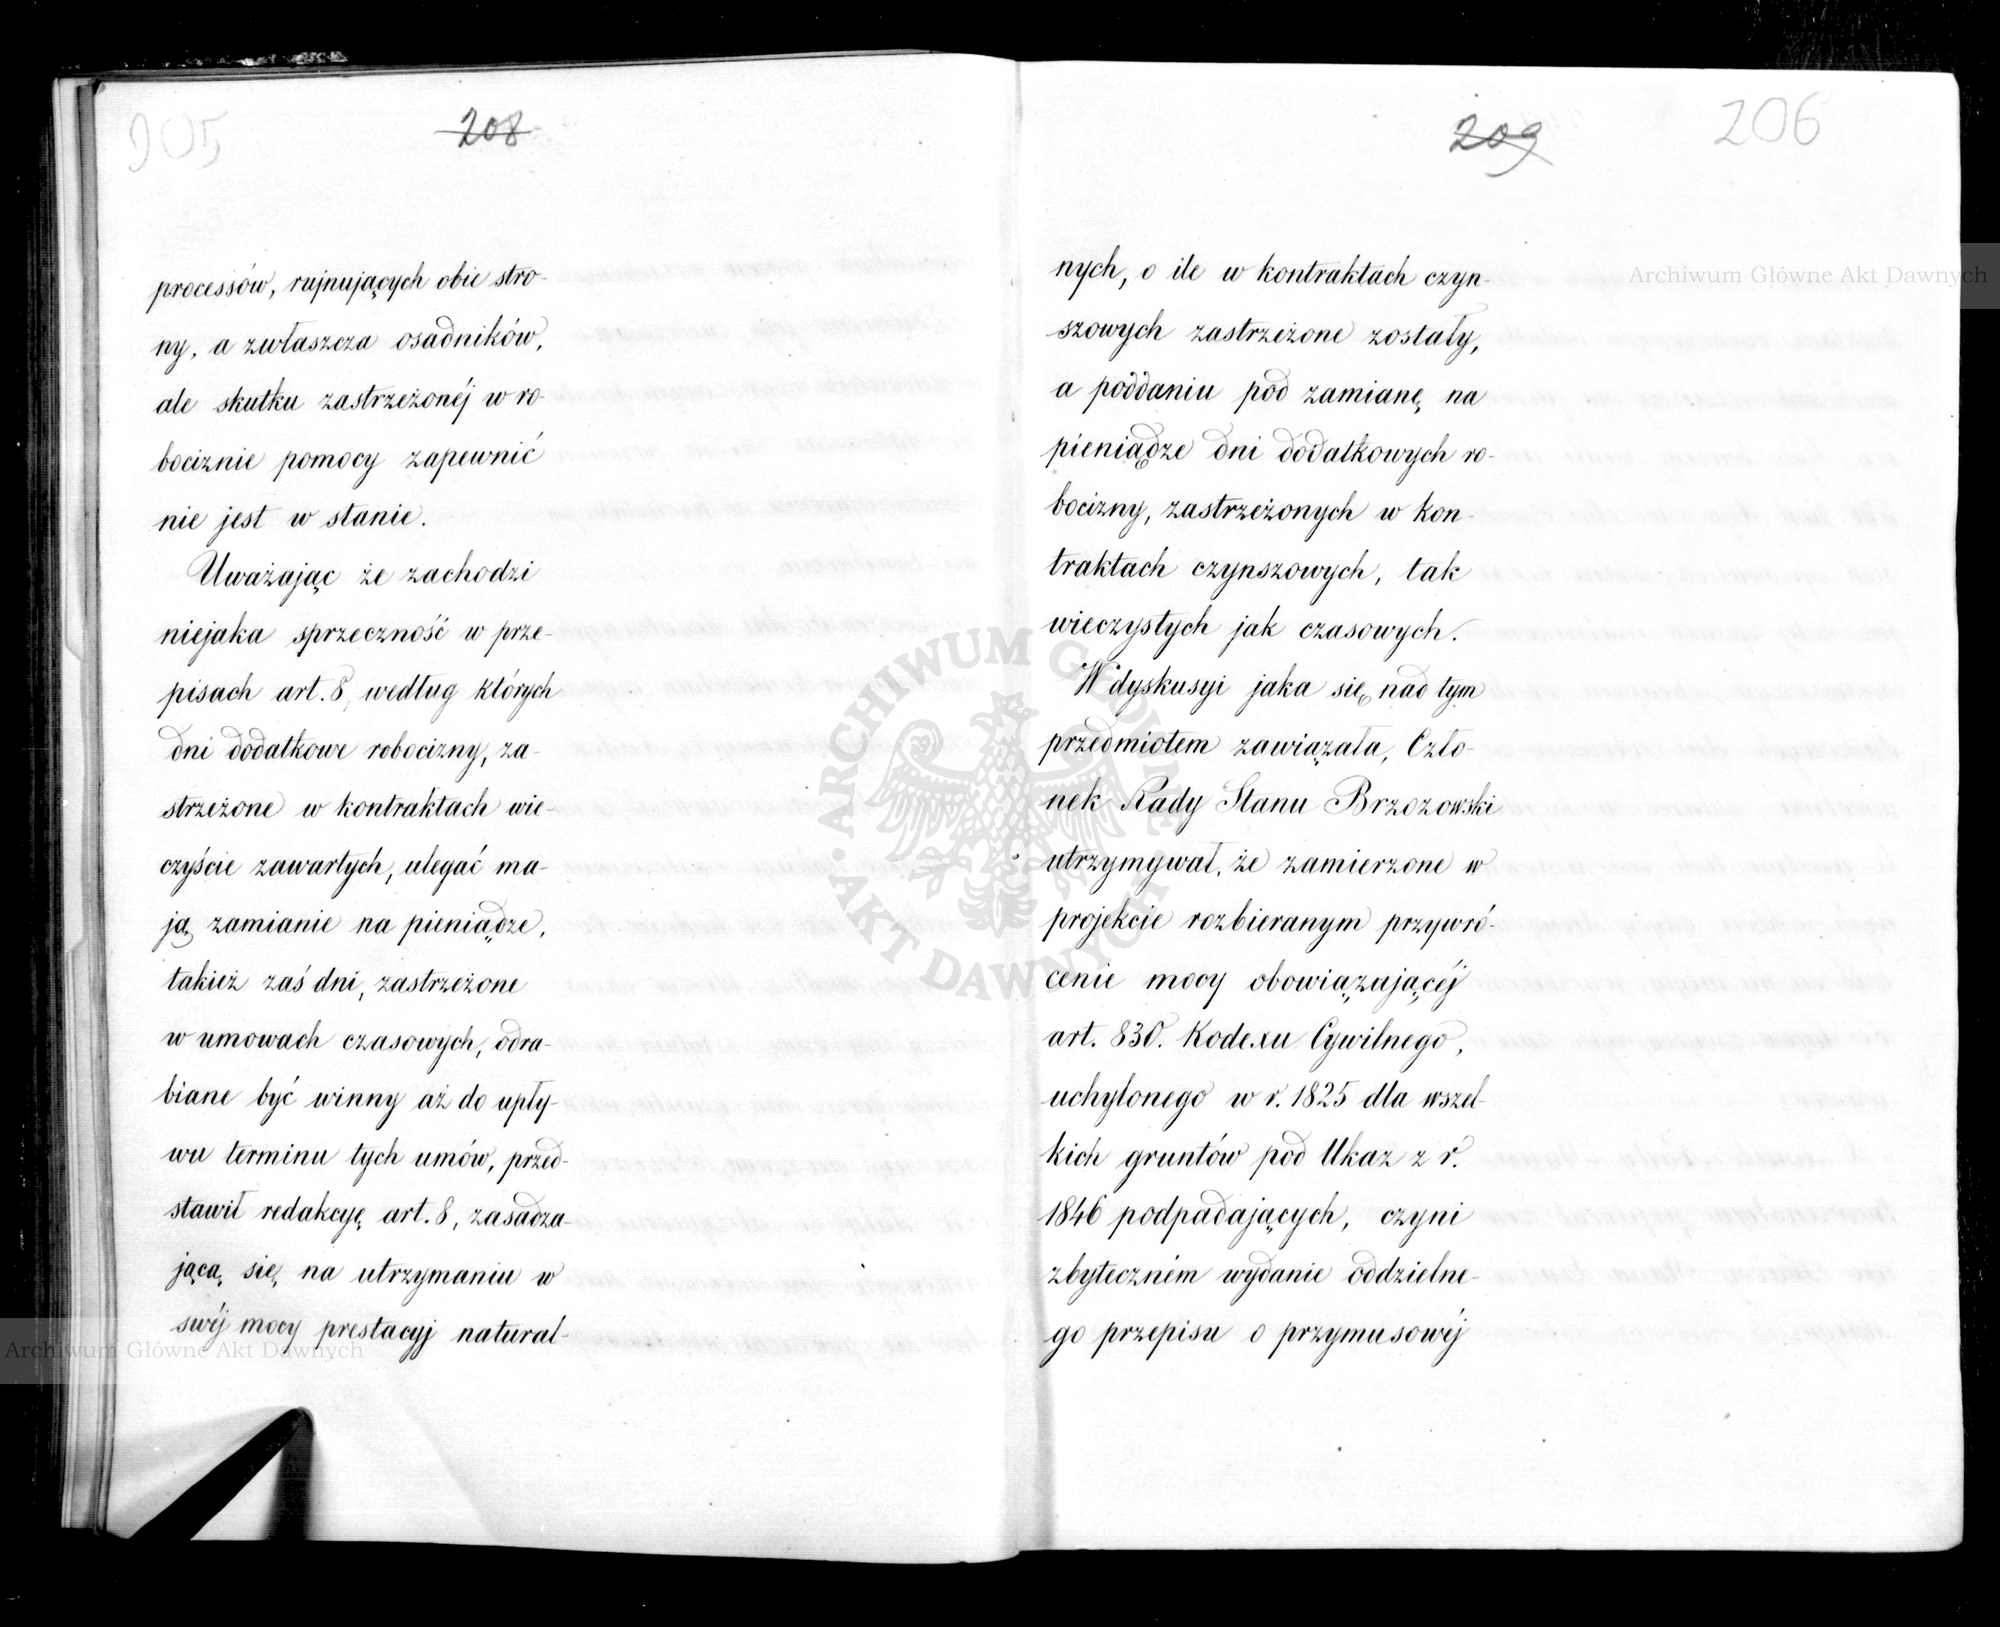 205
208
processów, rujnujących obie stro-
ny, a zwłaszcza osadników,
ale skutku zastrzeżonéj w ro-
bociznie pomocy zapewnić
nie jest w stanie.
Uważając że zachodzi
niejaka sprzeczność w prze-
pisach art. 8, według których
dni dodatkowe robocizny, za-
strzeżone w kontraktach wie-
czyście zawartych, ulegać ma-
ją zamianie na pieniądze,
takież zaś dni, zastrzeżone
w umowach czasowych, odra-
biane być winny aż do upły-
wu terminu tych umów, przed-
stawił redakcyę art. 8, zasadza-
jącą się na utrzymaniu w
swéj mocy prestacyj natural-
209
206
nych, o ile w kontraktach czyn-
szowych zastrzeżone zostały,
a poddaniu pod zamianę na
pieniądze dni dodatkowych ro-
bocizny, zastrzeżonych w kon-
traktach czynszowych, tak
wieczystych jak czasowych.
W dyskusyi jaka się nad tym
przedmiotem zawiązała, Czło-
nek Rady Stanu Brzozowski
utrzymywał, że zamierzone w
projekcie rozbieranym przywró-
cenie mocy obowiązującéj
art. 830. Kodexu Cywilnego,
uchylonego w r. 1825 dla wszel-
kich gruntów pod Ukaz z r.
1846 podpadających, czyni
zbyteczném wydanie oddzielne-
go przepisu o przymusowéj
Archiwum Główne Akt Dawnych
ARCHIWUM GŁÓWNE
AKT DAWNYCH
Archiwum Główne Akt Dawnych